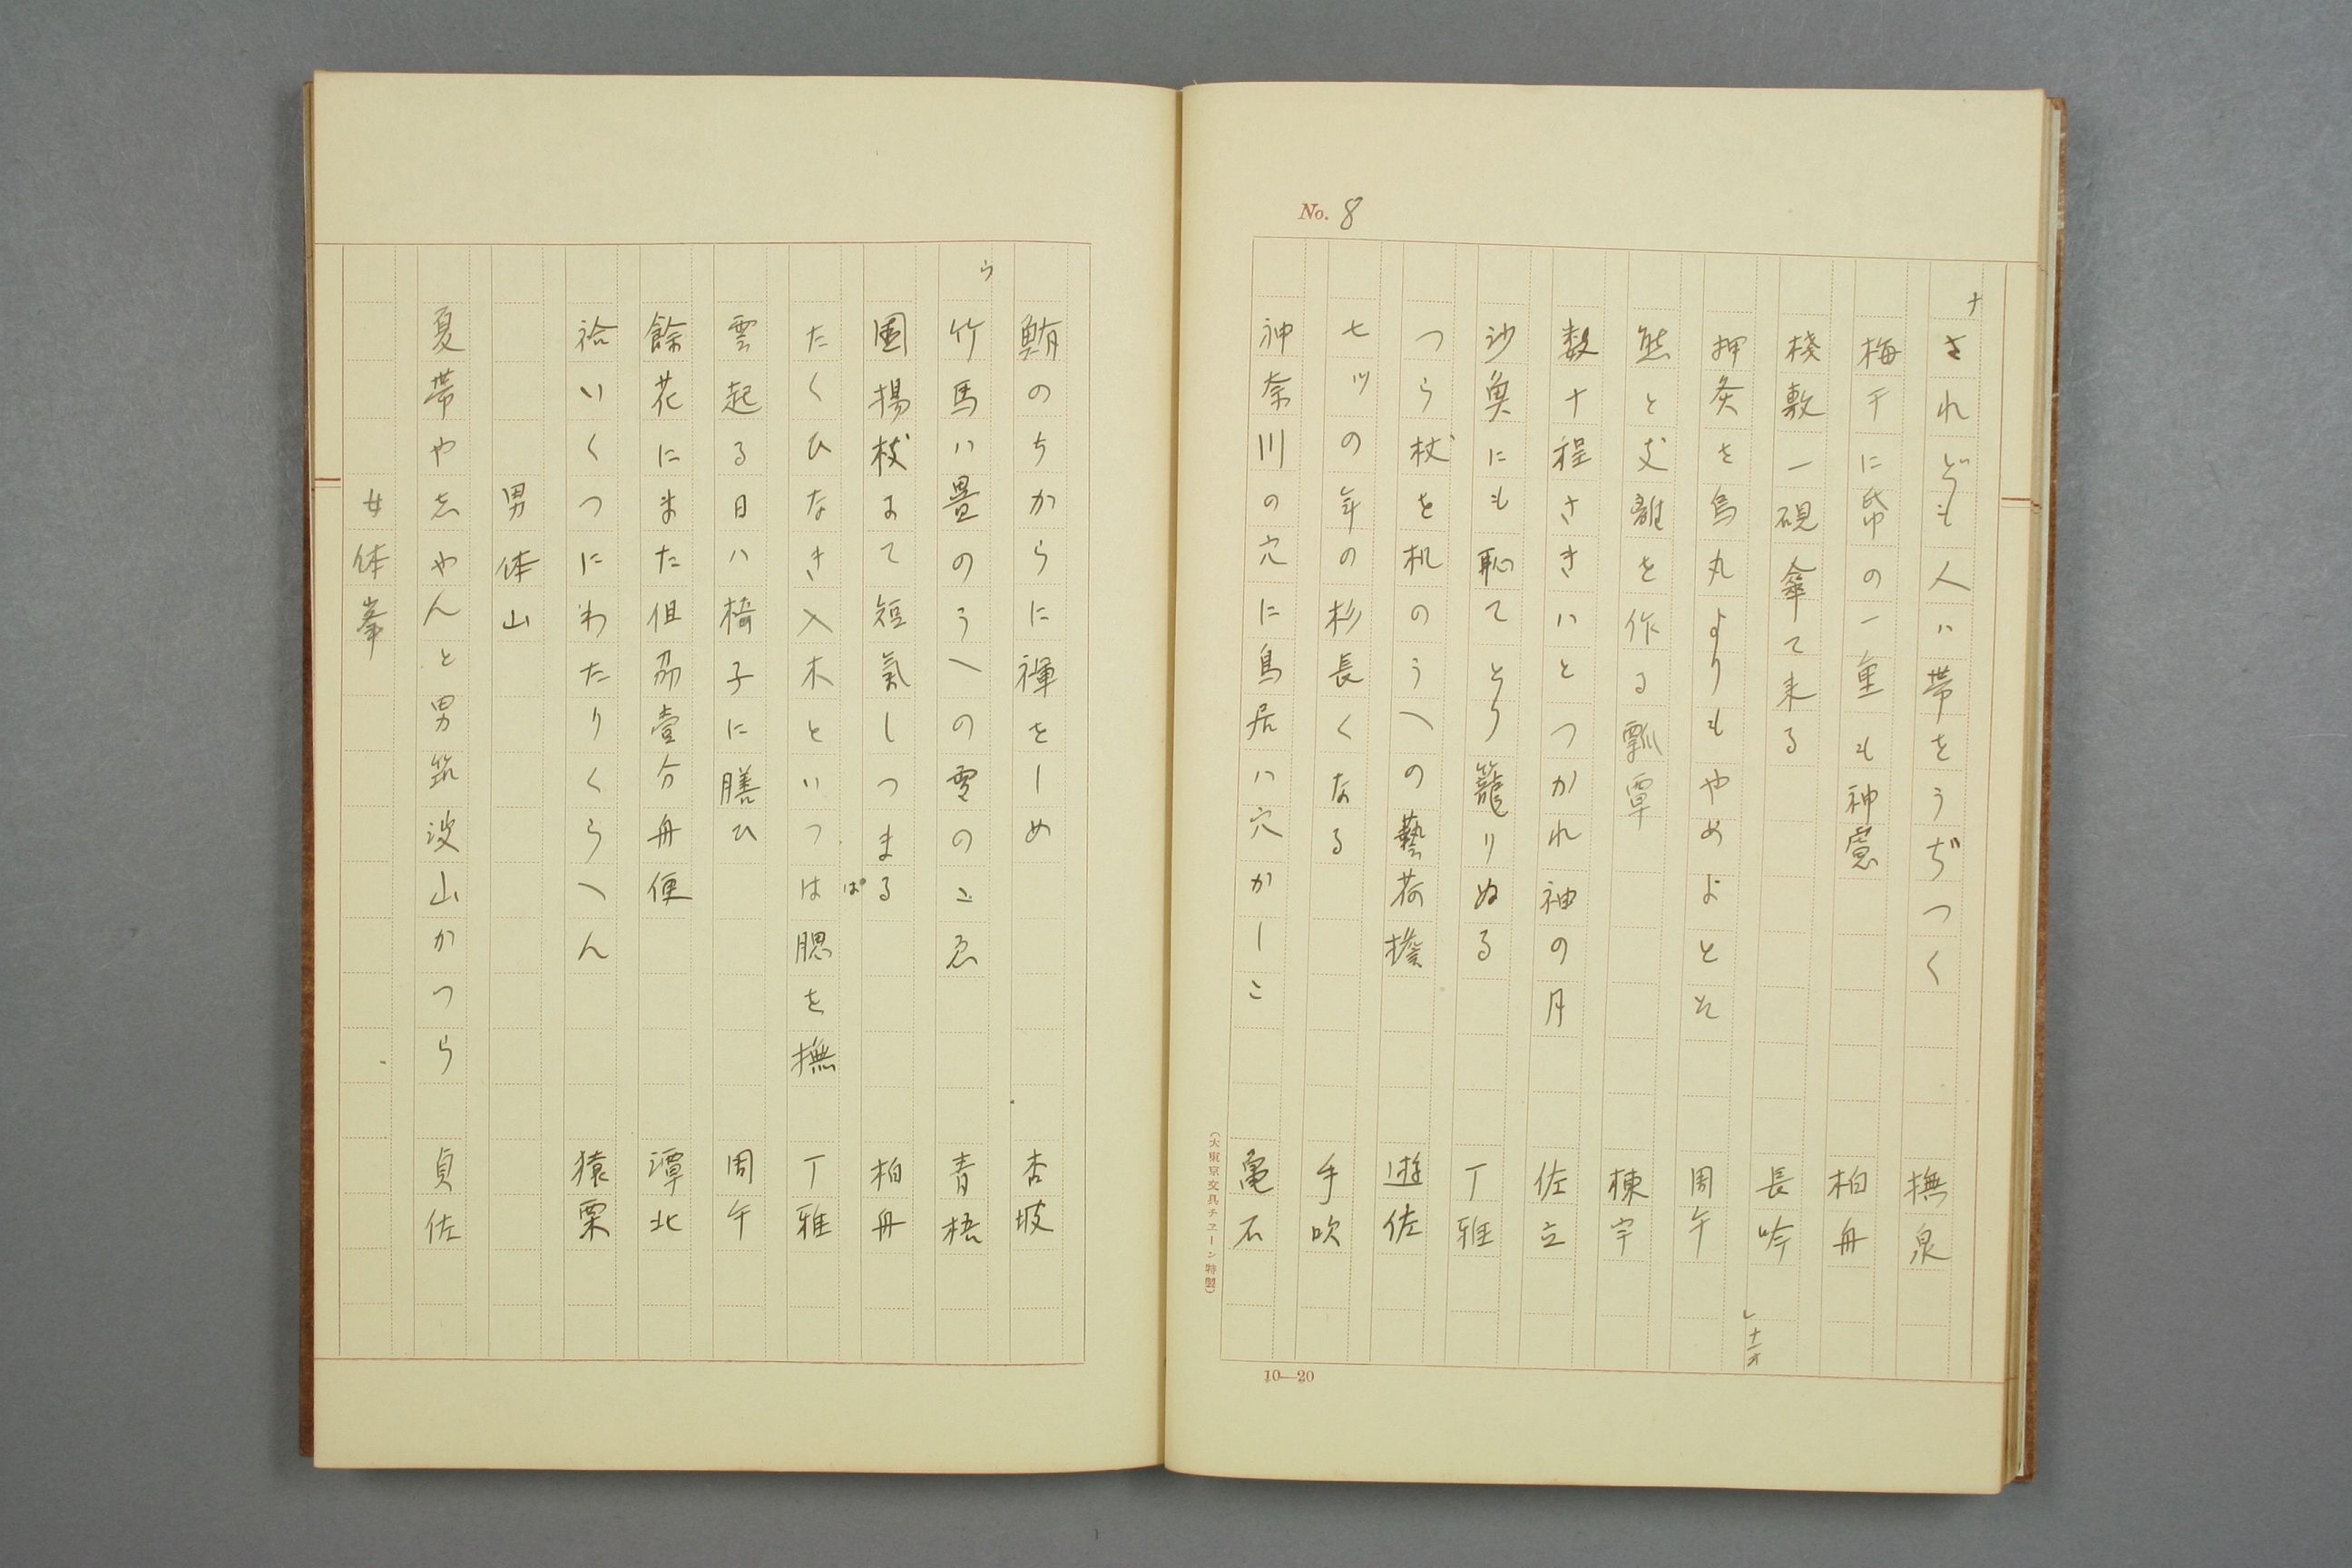 No. 8
ナ
されども人ハ帯をうぢつく 撫泉
梅干に帋の一重も神慮 柏舟
棧敷一硯傘て来る 長吟
押灸を烏丸よりもやめよとそ 周午
熊と支離を作る瓢覃 棟宇
数十程さきハとつかれ神の月 佐立
沙魚にも恥てとり籠りぬる 丁雅
つら杖を机のうへの藝荷擔 遊佐
七ツの年の杉長くなる 手吹
神奈川の穴に鳥居ハ穴かしこ 亀石
(大東京文具チェーン特製)
10—20
鮪のちからに褌をしめ 杏坡
ウ
竹馬ハ畳のうへの雪のこゑ 青梧
圍揚枝まて短氣しつまる 柏舟
たくひなき入木といつは腮を撫 丁雅
ぱ
雲起る日ハ椅子に膳ひ 周午
餘花にまた俎刕壹分舟便 潭北
袷いくつにわたりくらへん 猿栗
男体山
夏帯や志やんと男筑波山かつら 貞佐
女体峯